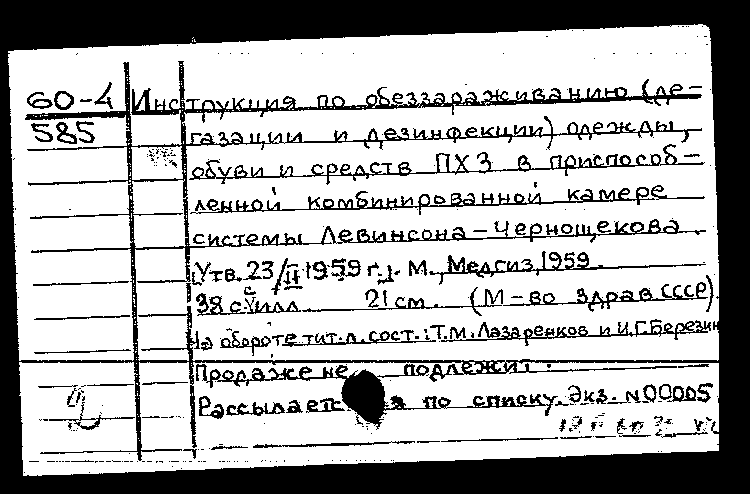 60-4 Инструкция по обеззараживанию (де-
585 газации и дезинфекции) одежды,
обуви и средств ПХЗ в приспособ-
ленной комбинированной камере
системы Левинсона-Чернощекова.
[Утв. 23/II 1959 г.]. М., Медгиз, 1959.
38 с. с илл. 21 см. (М-во здрав СССР).
На обороте тит. л. сост.: Т.М. Лазаренков и И.Г. Березин
Продаже не подлежит.
2 Рассылается по списку. Экз. N00005